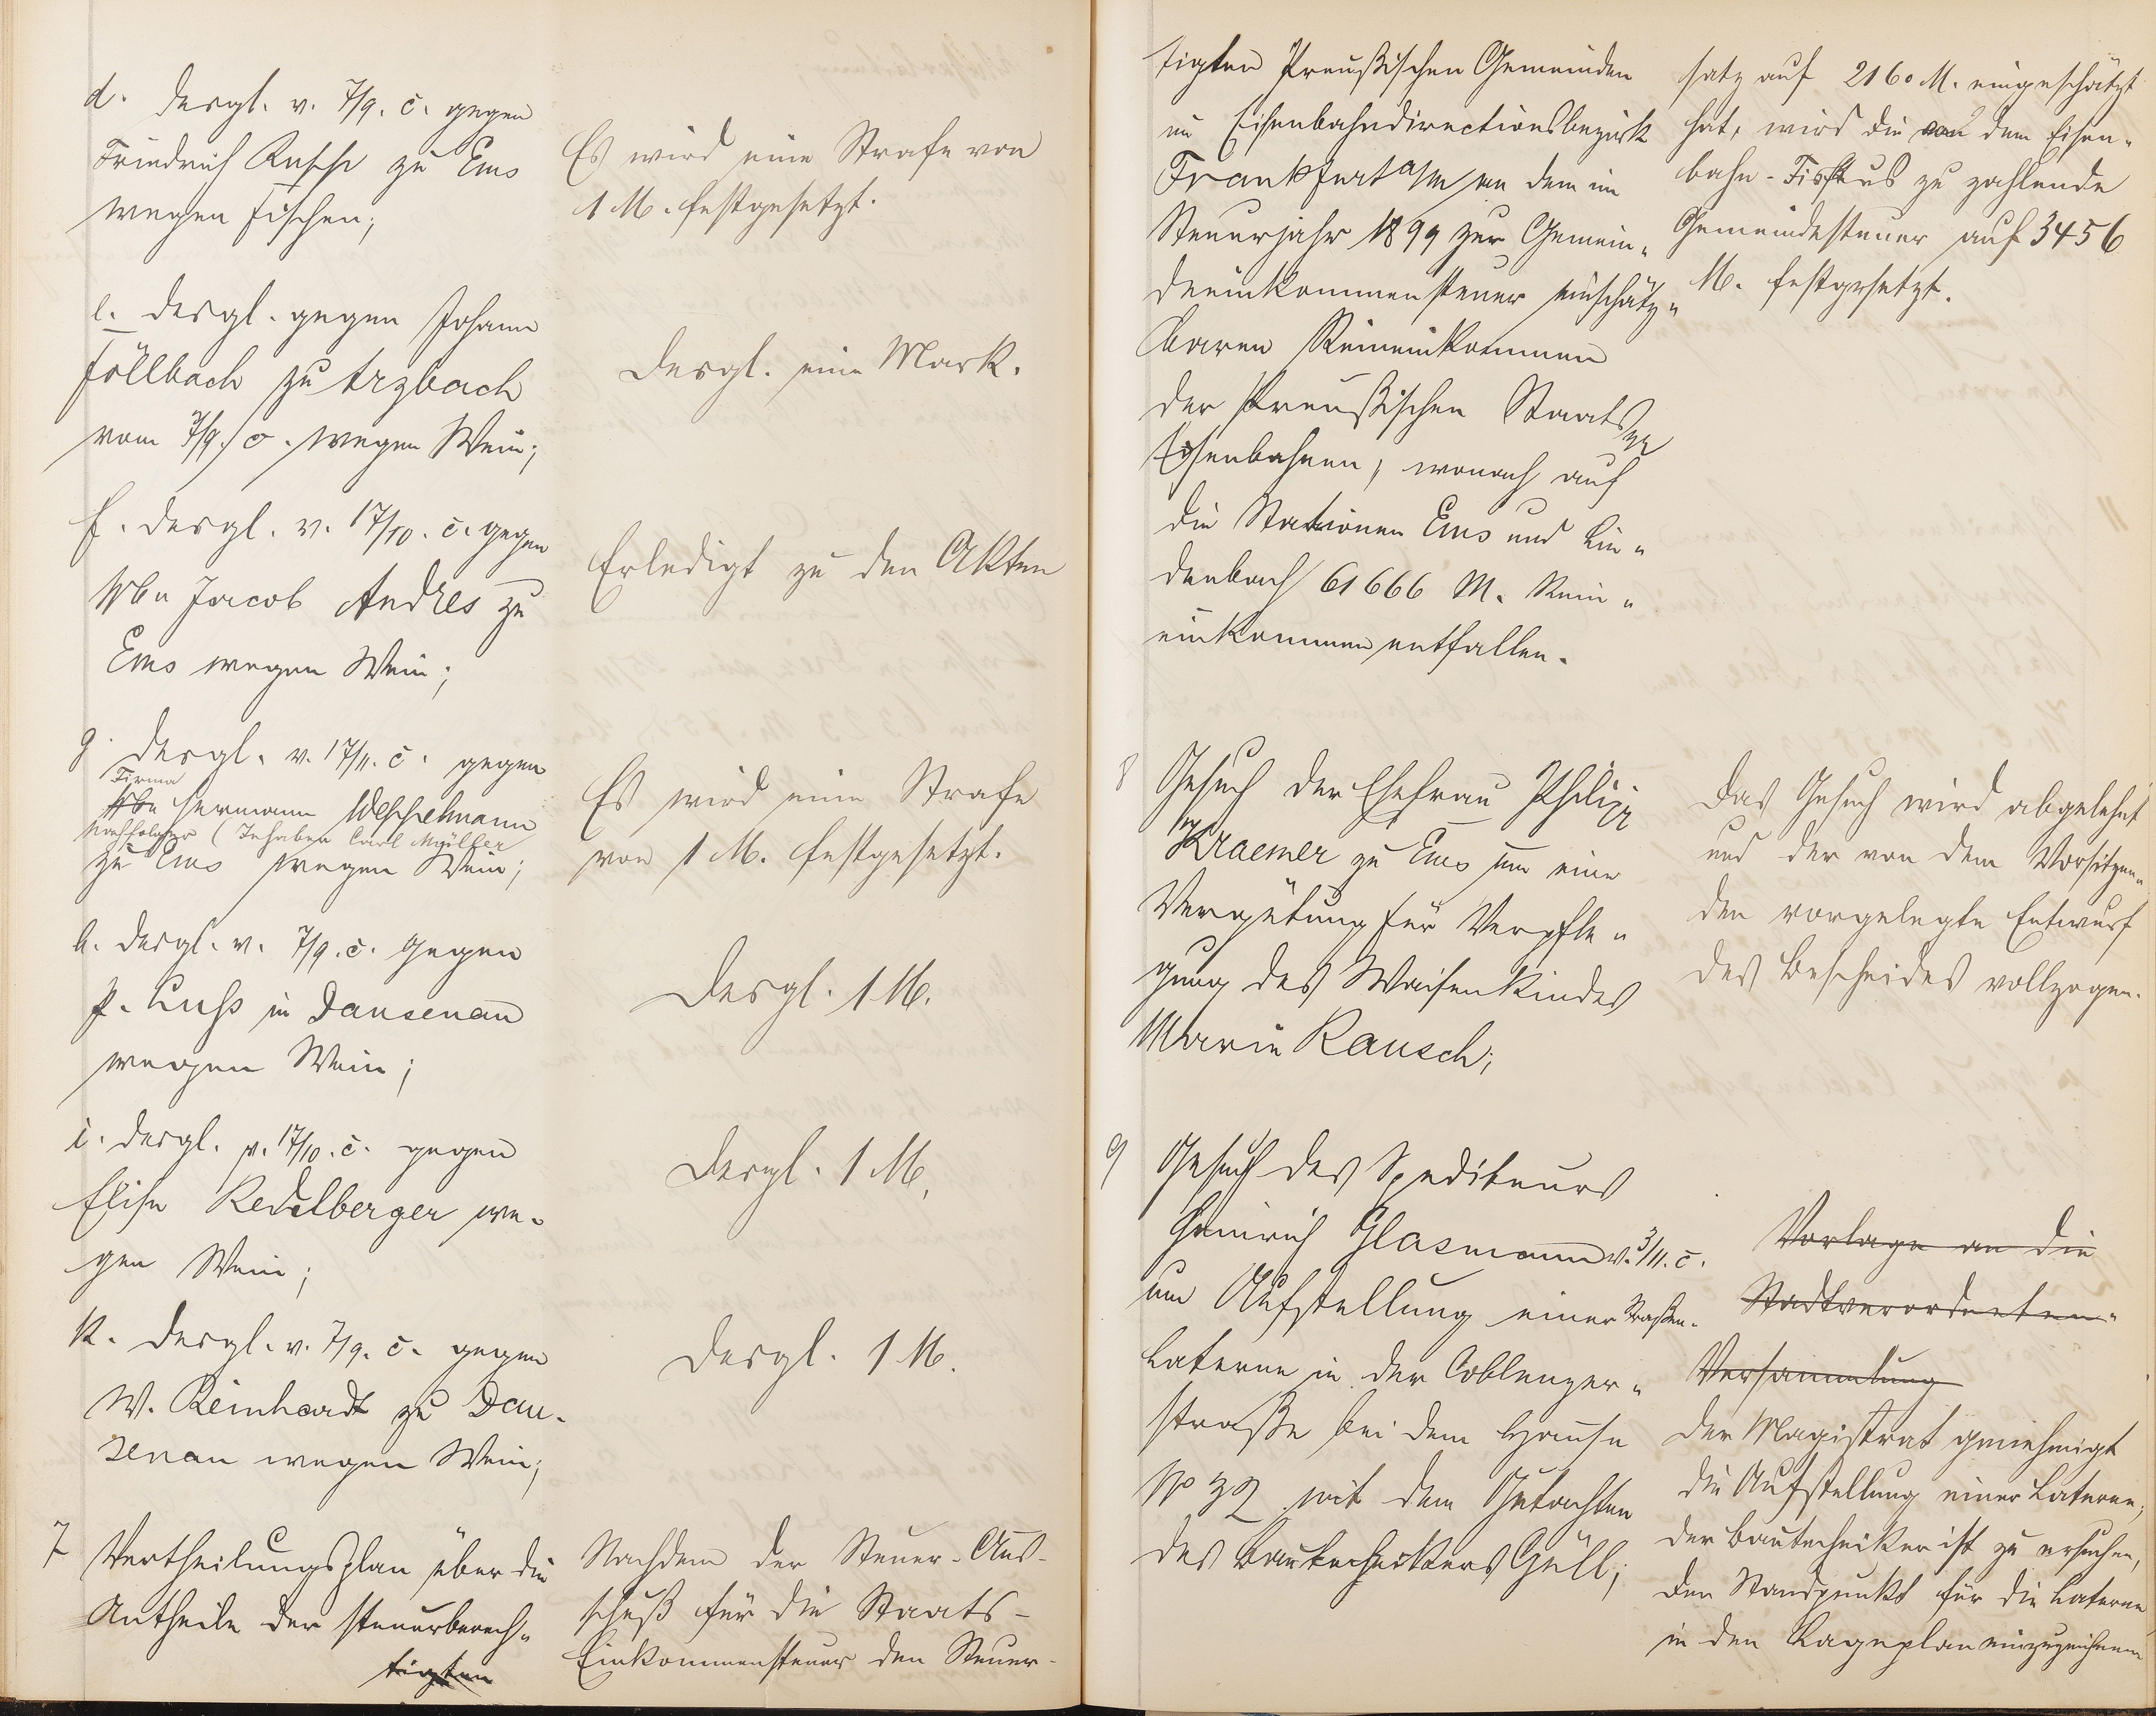 d. desgl. v. 7/9. c. gegen
Friedrich zu Ems
wegen Fischen;
Es wird eine Strafe von
1 M. festgesetzt.
e. desgl. gegen Johann
Föllbach zu Arzbach
vom 7/9. c. wegen Wein;
desgl. eine Mark.
f. desgl. v. 17/10. c. gegen
Jacob Andres zu
Ems wegen Wein;
Erledigt zu den Akten
g. desgl. v. 17/11. c. gegen
Firma
Hermann
Nachfolger (Inhaber Carl Müller
zu Ems wegen Wein;
Es wird eine Strafe
von 1 M. festgesetzt.
h. desgl. v. 7/9. c. gegen
P. Luss in Dausenau
wegen Wein;
Desgl. 1 M.
i. desgl. v. 17/10. c. gegen
Elise Redelberger we-
gen Wein;
Desgl. 1 M.
k. desgl. v. 7/9. c. gegen
W. Reinhardt zu Dau-
senau wegen Wein;
Desgl. 1 M.
7 Vertheilungsplan über die
Antheile der steuerberech-
tigten
Nachdem der Steuer-Aus-
schuß für die Staats-
Einkommensteuer den Steuer-
tigten Preußischen Gemeinden
im Eisenbahndirectionsbezirk
Frankfurt a/M an dem im
Steuerjahr 1899 zur Gemein-
deeinkommensteuer einschätz-
baren Reineinkommen
der Preußischen Staats
Eisenbahnen, wonach auf
die Stationen Ems und Lin-
denbach 61666 M. Rein-
einkommen entfallen.
satz auf 2160 M. eingeschätzt
hat, wird die von dem Eisen-
bahn-Fiskus zu zahlende
Gemeindesteuer auf 3456
M. festgesetzt.
8 Gesuch der Ehefrau Philipp
Kraemer zu Ems um eine
Vergütung für Verpfle-
gung des Waisenkindes
Marie Rausch;
Das Gesuch wird abgelehnt
und der von dem Vorsitzen-
den vorgelegte Entwurf
des Bescheides vollzogen.
9 Gesuch des Spediteurs
Heinrich Glasmann v. 3/11. c.
um Aufstellung einer Straßen-
Laterne in der Coblenzer-
straße bei dem Hause
No 32 mit dem Gutachten
des Bautechnikers Güll;
Vorlage an die
Stadtverordneten-
Versammlung
Der Magistrat genehmigt
die Aufstellung einer Laterne,
der Bautechniker ist zu ersuchen,
den Standpunkt für die Laterne
in den Lageplan einzuzeichnen